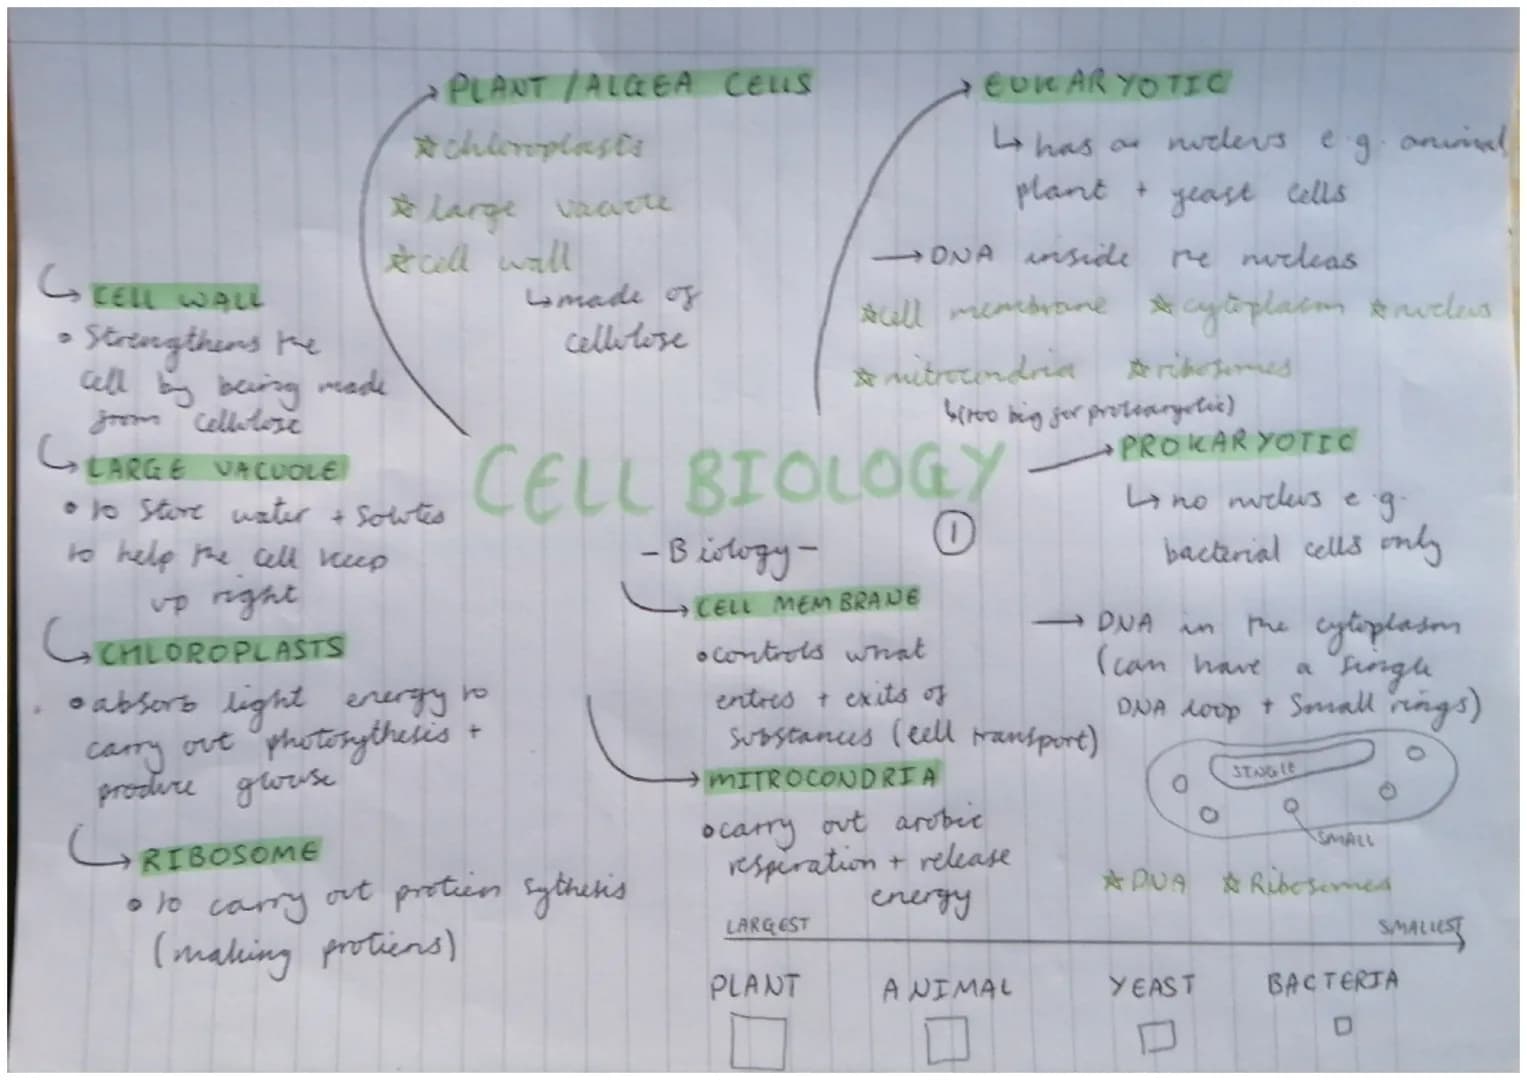 PLANT / ALGEA CELLS
☆ chloroplasts
☆ large vacuole
☆ cell wall
↳ made of
cellulose
EUKARYOTIC
↳ has a nucleus e.g. animal
plant + yeast cells
→ DNA inside the nucleas
☆ cell membrane ☆ cytoplasm ☆ nucleus
☆ mitrocondria ☆ ribosomes
↳ (too big for protearyotic)
CELL WALL
• Strengthens the
cell by being made
from cellulose
LARGE VACUOLE
• to store water + solutes
to help the cell keep
up right
CHLOROPLASTS
• absorb light energy to
carry out photosythesis +
produce glouse
RIBOSOME
• to carry out protien sythesis
(making protiens)
CELL BIOLOGY
- Biology -
1
CELL MEMBRANE
• controls what
entres + exits of
substances (cell transport)
MITROCONDRIA
• carry out arobic
respiration + release
energy
PROKARYOTIC
↳ no nucleus e.g.
bacterial cells only
→ DNA in the cytoplasm
(can have a single
DNA loop + small rings)
SINGLE
SMALL
☆ DNA ☆ Ribosomes
LARGEST SMALLEST
PLANT ANIMAL YEAST BACTERIA